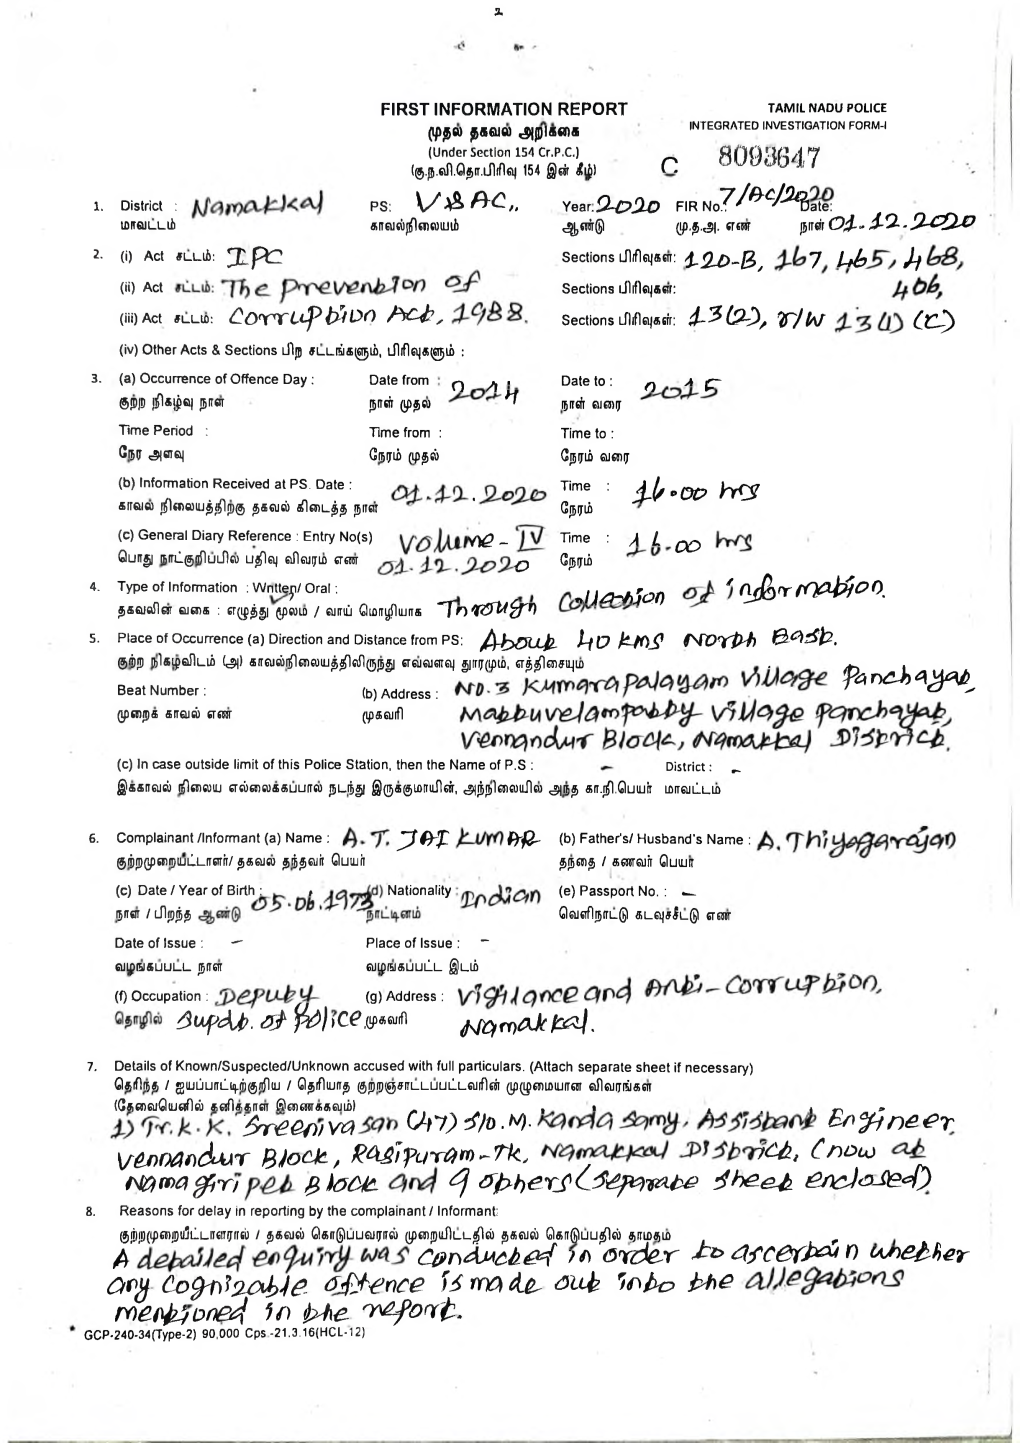 2
FIRST INFORMATION REPORT
TAMIL NADU POLICE
முதல் தகவல் அறிக்கை
INTEGRATED INVESTIGATION FORM-I
(Under Section 154 Cr.P.C.)
(கு.ந.வி.தொ.பிரிவு 154 இன் கீழ்)
C 8093647
1. District : Namakkal PS: V&AC,. Year: 2020 FIR No.: 7/AC/2020 Date:
மாவட்டம் காவல்நிலையம் ஆண்டு மு.த.அ. எண் நாள் 01.12.2020
2. (i) Act சட்டம்: IPC Sections பிரிவுகள்: 120-B, 167, 465, 468,
(ii) Act சட்டம்: The Prevention of Sections பிரிவுகள்: 406,
(iii) Act சட்டம்: Corruption Act, 1988. Sections பிரிவுகள்: 13(2), r/w 13(1) (c)
(iv) Other Acts & Sections பிற சட்டங்களும், பிரிவுகளும் :
3. (a) Occurrence of Offence Day : Date from : 2014 Date to : 2015
குற்ற நிகழ்வு நாள் நாள் முதல் நாள் வரை
Time Period : Time from : Time to :
நேர அளவு நேரம் முதல் நேரம் வரை
(b) Information Received at PS. Date : 01.12.2020 Time : 16.00 hrs
காவல் நிலையத்திற்கு தகவல் கிடைத்த நாள் நேரம்
(c) General Diary Reference : Entry No(s) Volume-IV Time : 16.00 hrs
பொது நாட்குறிப்பில் பதிவு விவரம் எண் 01.12.2020 நேரம்
4. Type of Information : Written/ Oral :
தகவலின் வகை : எழுத்து மூலம் / வாய் மொழியாக Through Collection of information.
5. Place of Occurrence (a) Direction and Distance from PS: About 40 kms North East.
குற்ற நிகழ்விடம் (அ) காவல்நிலையத்திலிருந்து எவ்வளவு தூரமும், எத்திசையும்
Beat Number : (b) Address : No.3 Kumarapalayam Village Panchayat,
முறைக் காவல் எண் முகவரி Mattuvelampatty Village Panchayat,
Vennandur Block, Namakkal District.
(c) In case outside limit of this Police Station, then the Name of P.S : – District : –
இக்காவல் நிலைய எல்லைக்கப்பால் நடந்து இருக்குமாயின், அந்நிலையில் அந்த கா.நி.பெயர் மாவட்டம்
6. Complainant /Informant (a) Name : A.T. JAI KUMAR (b) Father's/ Husband's Name : A. Thiyagarajan
குற்றமுறையீட்டாளர்/ தகவல் தந்தவர் பெயர் தந்தை / கணவர் பெயர்
(c) Date / Year of Birth : 05.06.1973 (d) Nationality : Indian (e) Passport No. : –
நாள் / பிறந்த ஆண்டு நாட்டினம் வெளிநாட்டு கடவுச்சீட்டு எண்
Date of Issue : – Place of Issue : –
வழங்கப்பட்ட நாள் வழங்கப்பட்ட இடம்
(f) Occupation : Deputy (g) Address : Vigilance and Anti-Corruption,
தொழில் Supdt. of Police முகவரி Namakkal.
7. Details of Known/Suspected/Unknown accused with full particulars. (Attach separate sheet if necessary)
தெரிந்த / ஐயப்பாட்டிற்குறிய / தெரியாத குற்றஞ்சாட்டப்பட்டவரின் முழுமையான விவரங்கள்
(தேவையெனில் தனித்தாள் இணைக்கவும்)
1) Tr. K.K. Sreenivasan (47) S/o. M. Kandasamy, Assistant Engineer,
Vennandur Block, Rasipuram-Tk, Namakkal District, (now at
Namagiripet Block and 9 others (separate sheet enclosed).
8. Reasons for delay in reporting by the complainant / Informant:
குற்றமுறையீட்டாளரால் / தகவல் கொடுப்பவரால் முறையிட்டதில் தகவல் கொடுப்பதில் தாமதம்
A detailed enquiry was conducted in order to ascertain whether
any cognizable offence is made out into the allegations
mentioned in the report.
* GCP-240-34(Type-2) 90,000 Cps.-21.3.16(HCL-12)